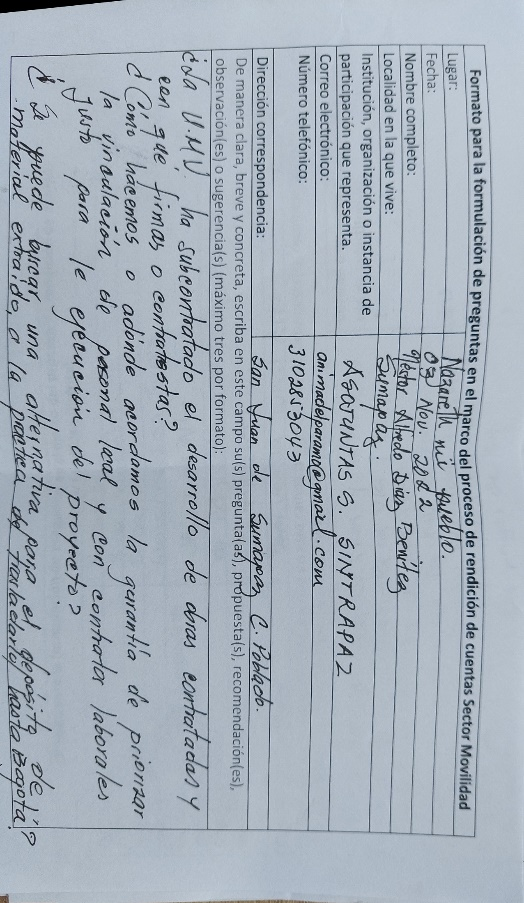 Formato para la formulación de preguntas en el marco del proceso de rendición de cuentas Sector Movilidad
Lugar: Nazareth mi pueblo.
Fecha: 03 Nov. 2022
Nombre completo: Néstor Alfredo Díaz Benítez
Localidad en la que vive: Sumapaz.
Institución, organización o instancia de
participación que representa. ASOJUNTAS S. SINTRAPAZ
Correo electrónico: animadelparamo@gmail.com
Número telefónico: 3102813043
Dirección correspondencia: San Juan de Sumapaz C. Poblado.
De manera clara, breve y concreta, escriba en este campo su(s) pregunta(as), propuesta(s), recomendación(es),
observación(es) o sugerencia(s) (máximo tres por formato):
¿La U.M.V. ha subcontratado el desarrollo de obras contratadas y
con qué firmas o contratistas?
¿Cómo hacemos o adónde acordamos la garantía de priorizar
la vinculación de personal local y con contratos laborales
justo para le ejecución del proyecto?
¿ Se puede buscar una alternativa para el depósito de
material extraído, a la práctica de trasladarlo hasta Bogotá.